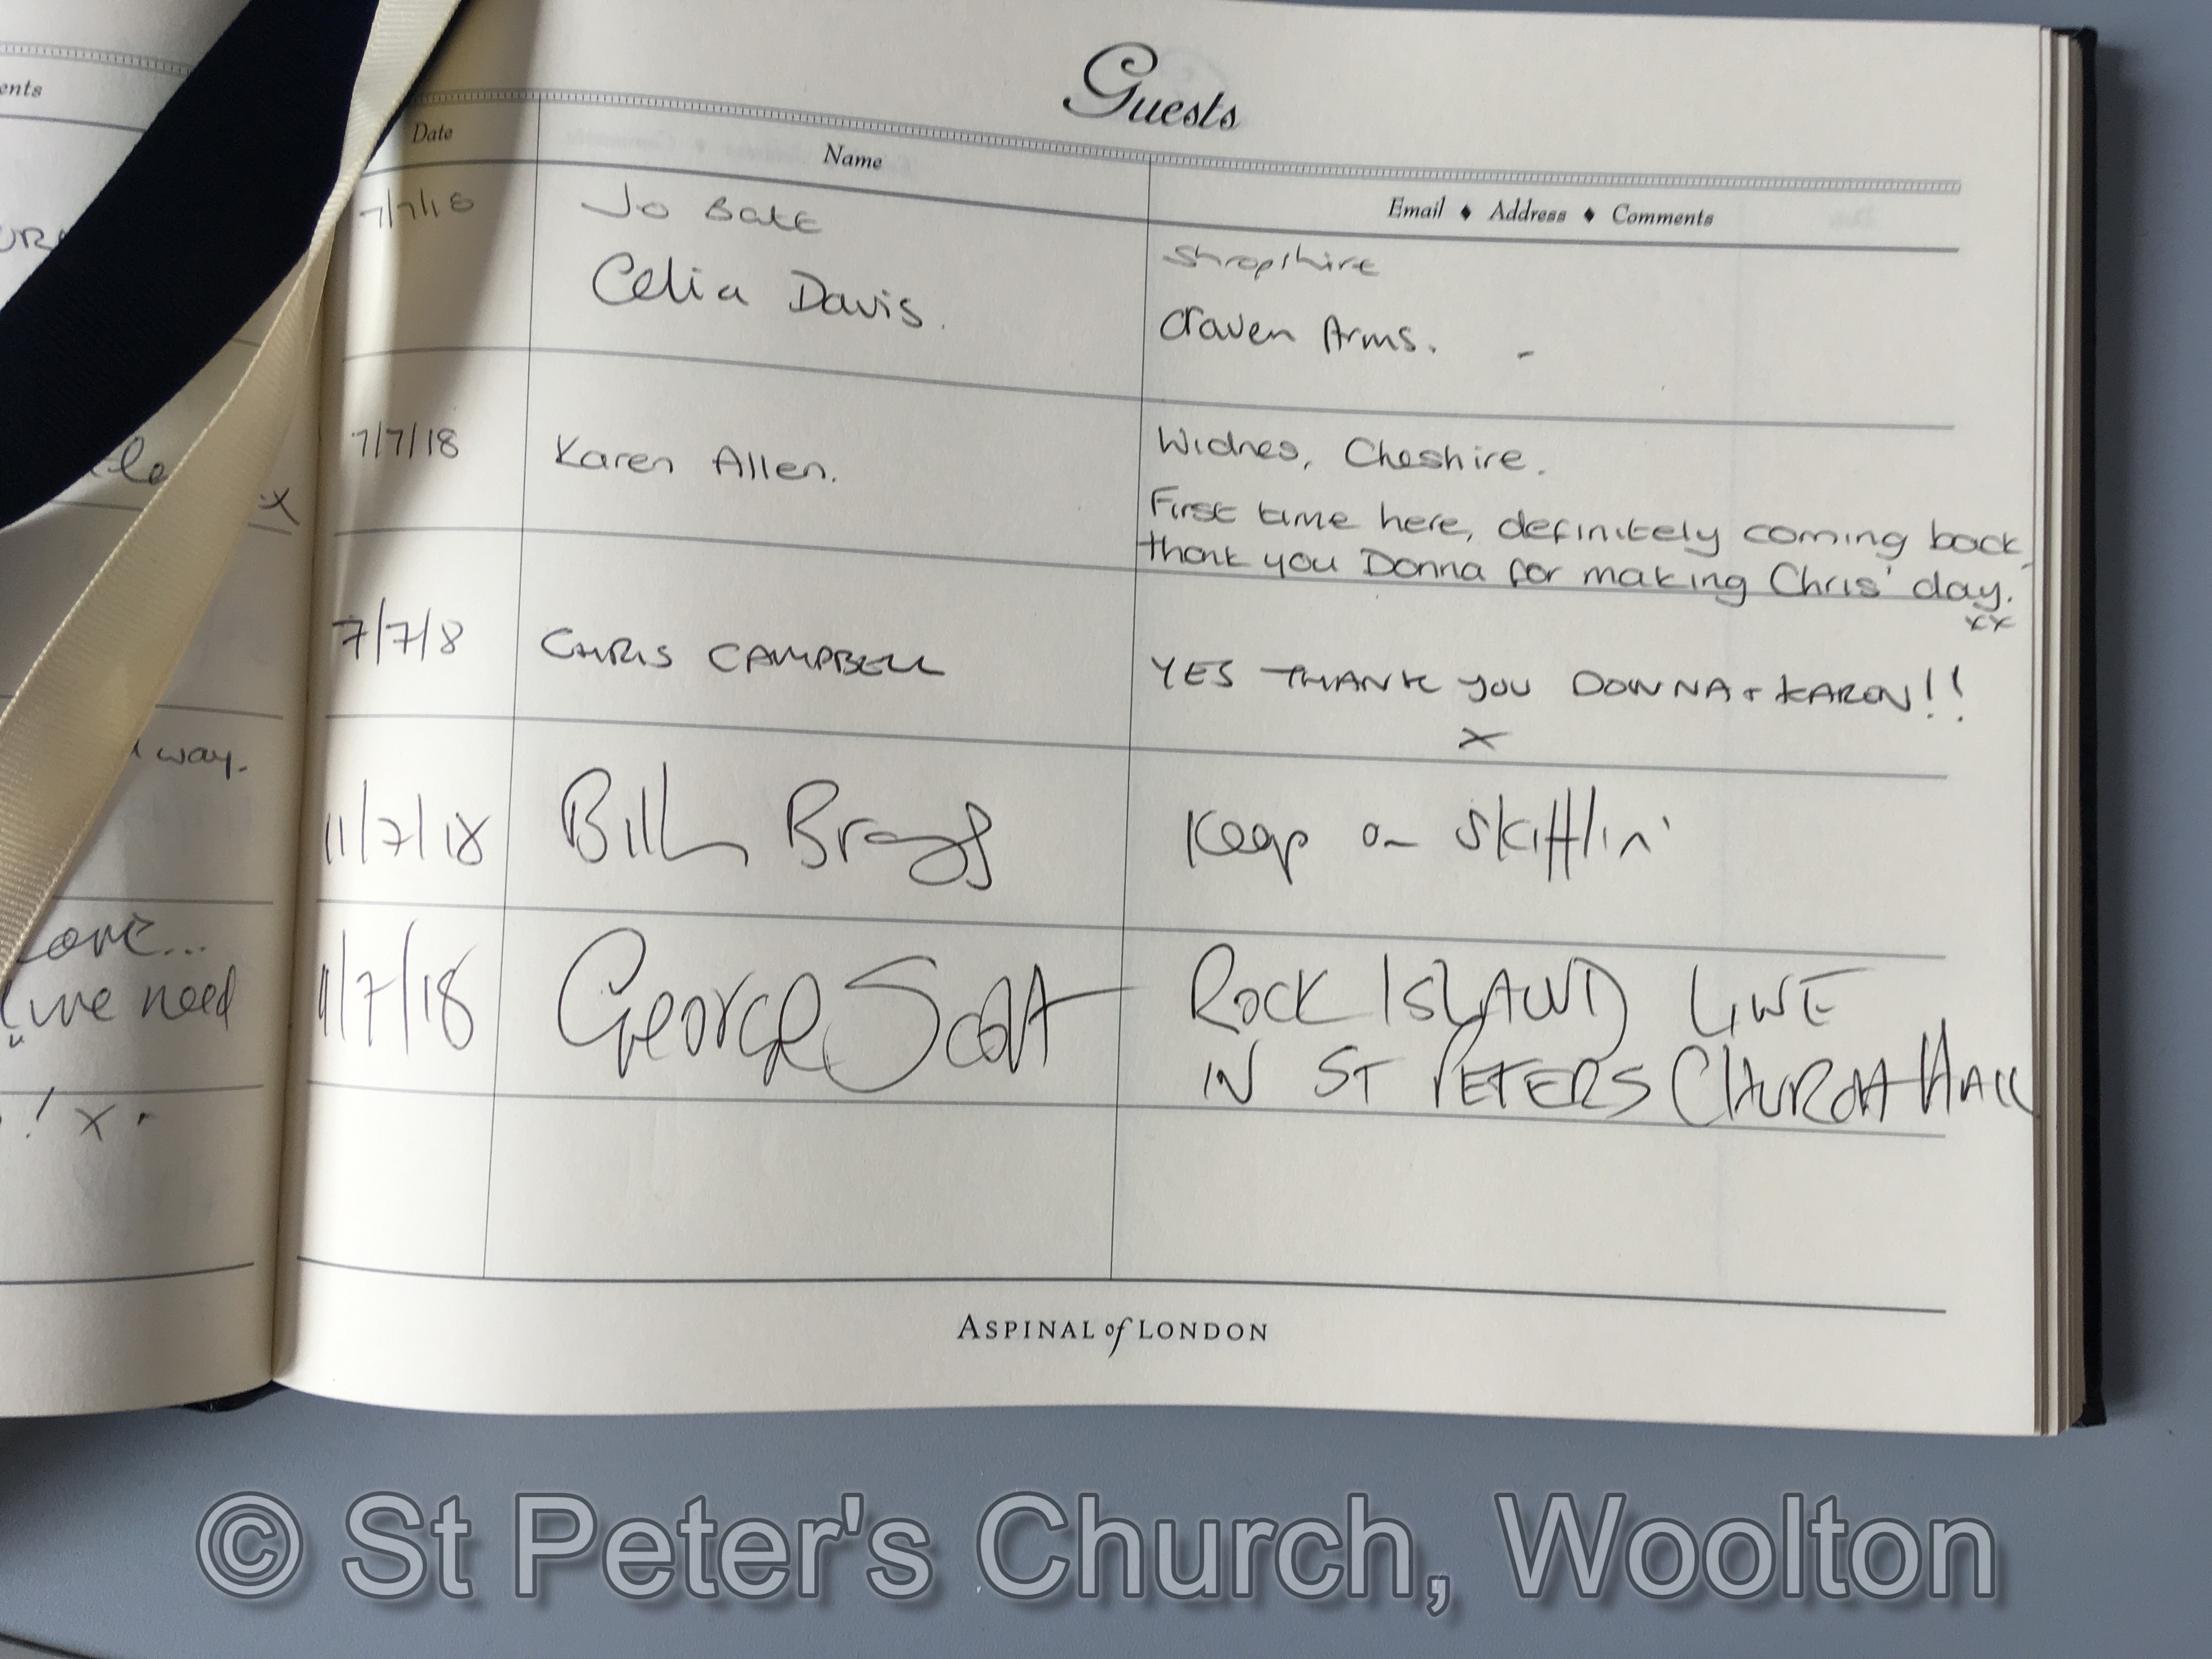 ents
way.
we need
! x
Guests
Date Name Email ♦ Address ♦ Comments
7/7/18 Jo Bate Shropshire
Celia Davis. Craven Arms. -
7/7/18 Karen Allen. Widnes, Cheshire.
First time here, definitely coming back,
thank you Donna for making Chris' day.
xx
7/7/8 CHRIS CAMPBELL YES THANK YOU DONNA + KAREN!!
x
11/7/18 Billy Bragg Keep on skifflin'
11/7/18 George Scott ROCK ISLAND LINE
IN ST PETERS CHURCH HALL
ASPINAL of LONDON
© St Peter's Church, Woolton